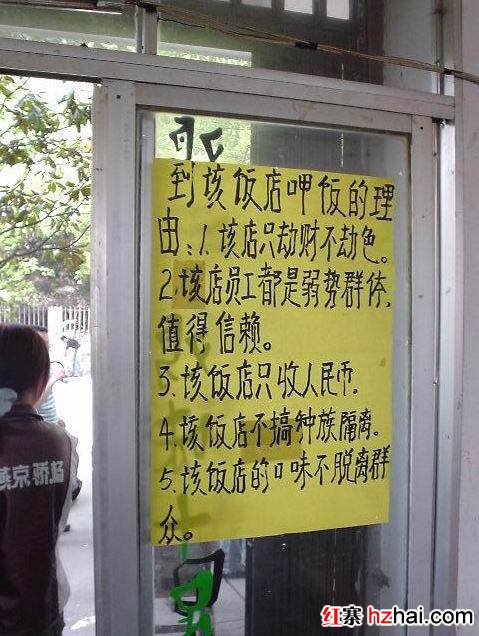 到该饭店呷饭的理
由:1.该店只劫财不劫色。
2.该店员工都是弱势群体,
值得信赖。
3.该饭店只收人民币。
4.该饭店不搞种族隔离。
5.该饭店的口味不脱离群
众。
燕京骄杨
红寨 hzhai.com